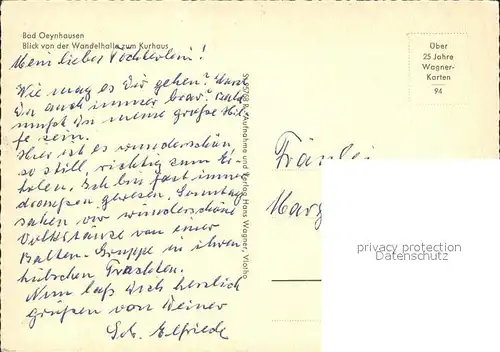 Bad Oeynhausen
Blick von der Wandelhalle zum Kurhaus
Mein liebes Töchterlein!
Wie mag es Dir gehen? Warst
Du auch immer brav? Bald
mußt Du meine große Hil-
fe sein.
Hier ist es wunderschön,
so still, richtig zum Er-
holen. Ich bin fast immer
draußen gewesen. Sonntag
sahen wir wunderschöne
Volkstänze von einer
Balten-Gruppe in ihren
hübschen Trachten.
Nun laß Dich herzlich
grüßen von Deiner
Sch. Elfriede
Aufnahme und Verlag Hans Wagner, Vlotho
Über
25 Jahre
Wagner-
Karten
94
Fräulei
Marg
privacy protection
Datenschutz